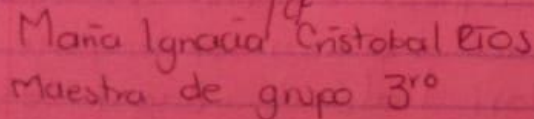 Maria Ignacia Cristobal Rios
Maestra de grupo 3ro